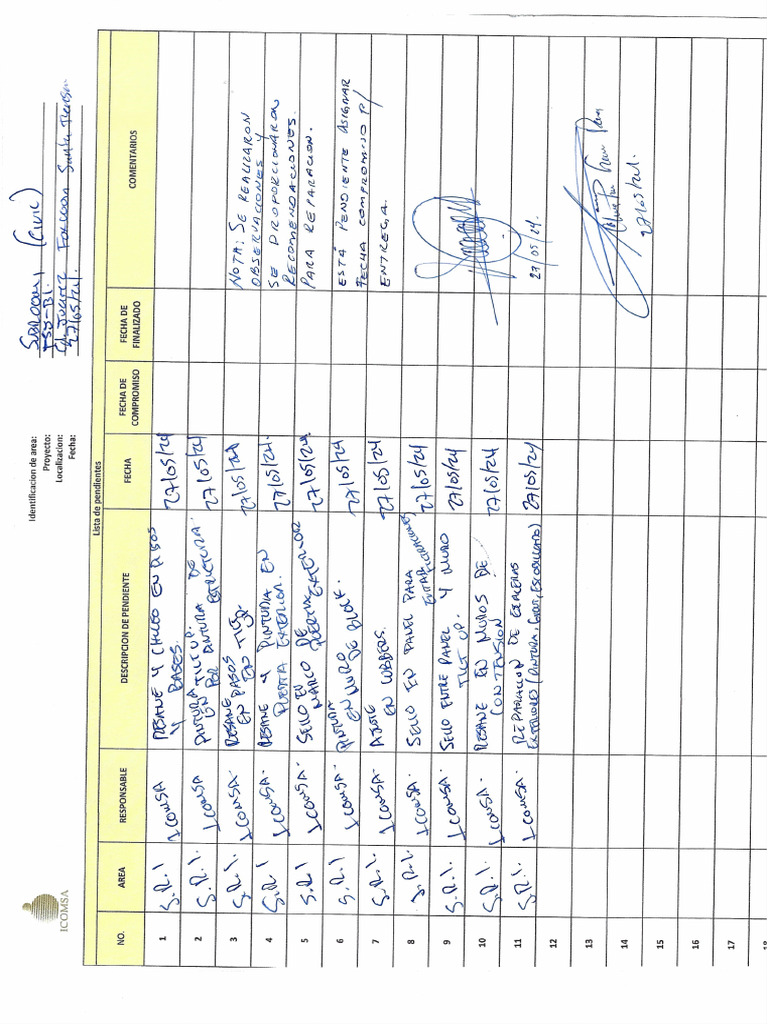 ICOMSA
Identificacion de area: SUBROOM 1 (CIVIL)
Proyecto: TSJ-B1.
Localizacion: Cd. Juarez Foxconn Santa Teresa
Fecha: 27/05/24.
Lista de pendientes
NO. AREA RESPONSABLE DESCRIPCION DE PENDIENTE FECHA FECHA DE COMPROMISO FECHA DE FINALIZADO COMENTARIOS
1 S.R.1 ICOMSA RESANE Y CHULEO EN PISOS
Y BASES. 27/05/24
2 S.R.1. ICOMSA PINTURA DE
EN TILT UP.
POR PINTURA ESTRUCTURA. 27/05/24
3 S.R.1. ICOMSA. RESANE
EN PASOS EN TILT
UP 27/05/24
4 S.R.1 ICOMSA. RESANE Y PINTURA EN
PUERTA EXTERIOR. 27/05/24.
5 S.R.1 ICOMSA. SELLO EN
MARCO DE
PUERTA EXTERIOR 27/05/24.
6 S.R.1 ICOMSA. PINTURA
EN MURO DE BLOCK. 27/05/24
7 S.R.1. ICOMSA. AJUSTE
EN LOUVERS. 27/05/24
8 S.R.1. ICOMSA. SELLO EN PANEL PARA
EVITAR FILTRACIONES 27/05/24
9 S.R.1. ICOMSA. SELLO ENTRE PANEL Y MURO
TILT UP. 27/05/24
10 S.R.1. ICOMSA. RESANE EN MUROS DE
CONTENSION 27/05/24
11 S.R.1. ICOMSA. REPARACION DE ESCALERAS
EXTERIORES (PINTURA, GROUT, ESCOBILLADO) 27/05/24
NOTA: SE REALIZARON
OBSERVACIONES Y
SE PROPORCIONARON
RECOMENDACIONES.
PARA REPARACION.
ESTÁ PENDIENTE ASIGNAR
FECHA COMPROMISO P/
ENTREGA.
27/05/24.
27/05/24.
12
13
14
15
16
17
18